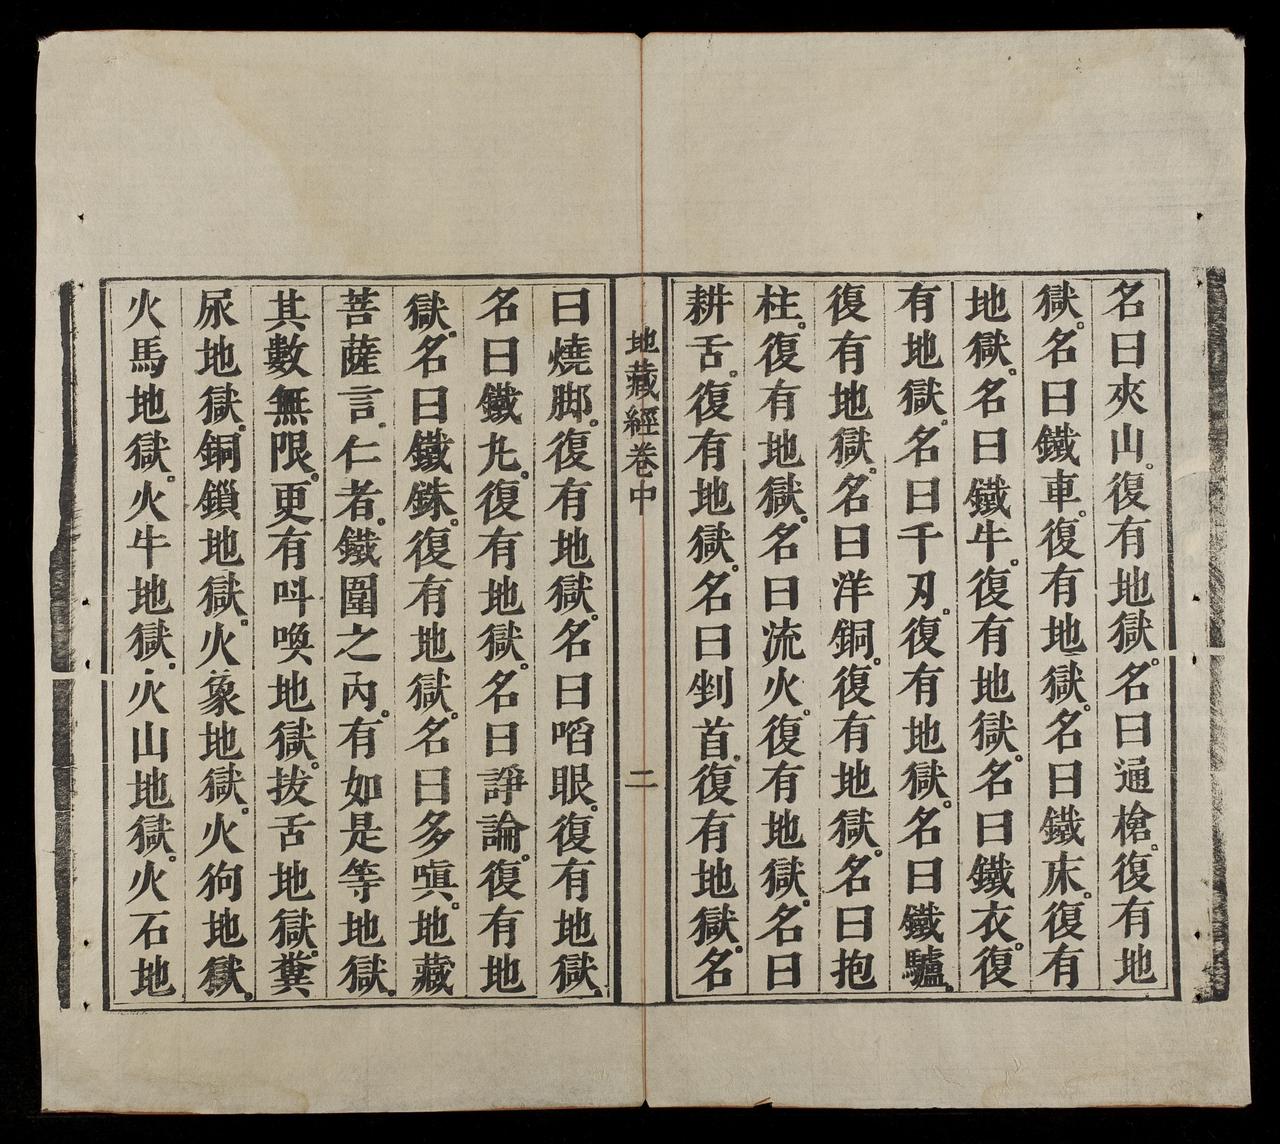 名曰夾山。復有地獄。名曰通槍。復有地
獄。名曰鐵車。復有地獄。名曰鐵床。復有
地獄。名曰鐵牛。復有地獄。名曰鐵衣。復
有地獄。名曰千刃。復有地獄。名曰鐵驢。
復有地獄。名曰洋銅。復有地獄。名曰抱
柱。復有地獄。名曰流火。復有地獄。名曰
耕舌。復有地獄。名曰剉首。復有地獄。名
地藏經卷中
二
曰燒脚。復有地獄。名曰啗眼。復有地獄。
名曰鐵丸。復有地獄。名曰諍論。復有地
獄。名曰鐵銖。復有地獄。名曰多嗔。地藏
菩薩言。仁者。鐵圍之內。有如是等地獄。
其數無限。更有呌喚地獄。拔舌地獄。糞
尿地獄。銅鎖地獄。火象地獄。火狗地獄。
火馬地獄。火牛地獄。火山地獄。火石地